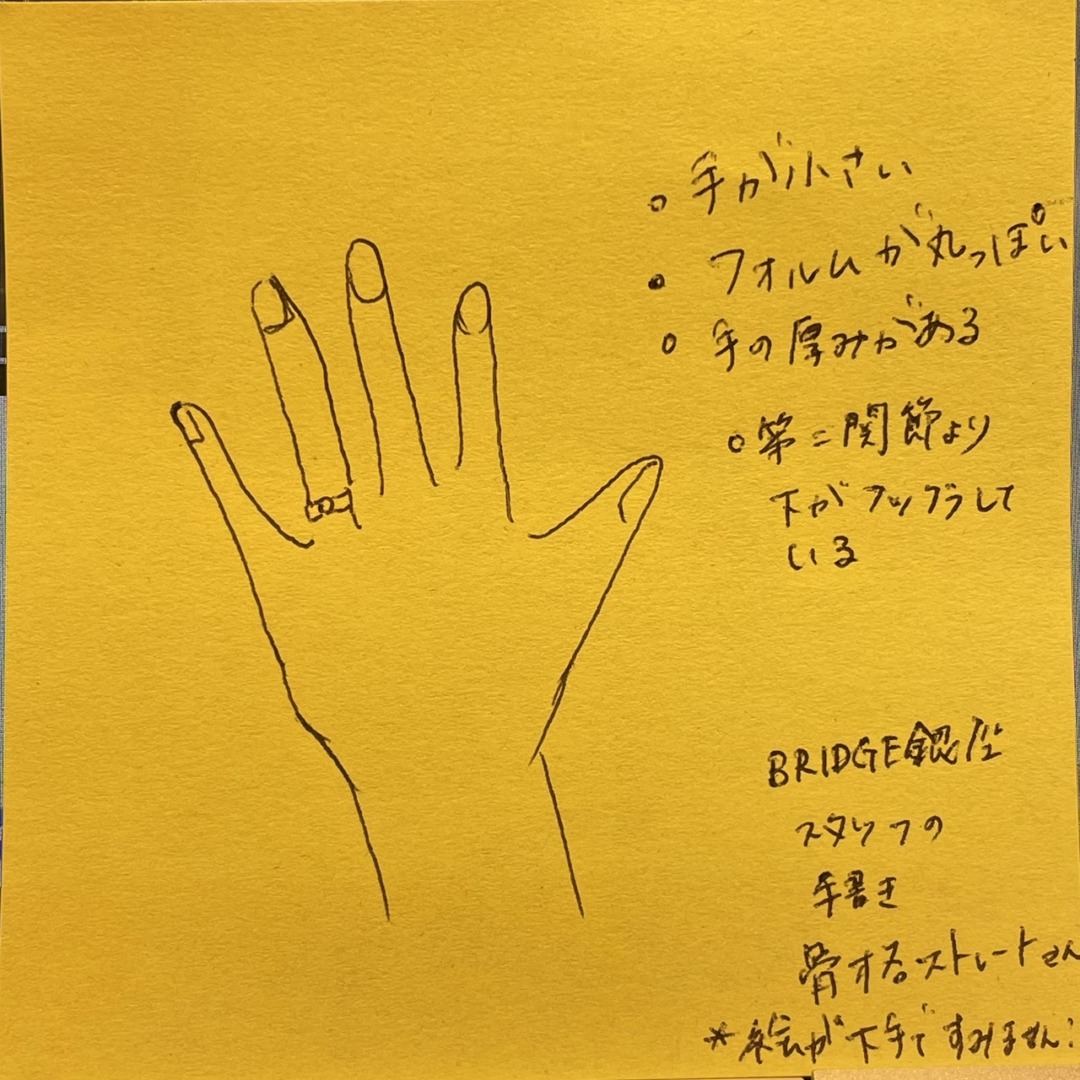 。手が小さい
。フォルムが丸っぽい
。手の厚みがある
。第二関節より
下がフックラして
いる
BRIDGE銀座
スタッフの
手書き
骨するストレートさん
*絵が下手ですみません